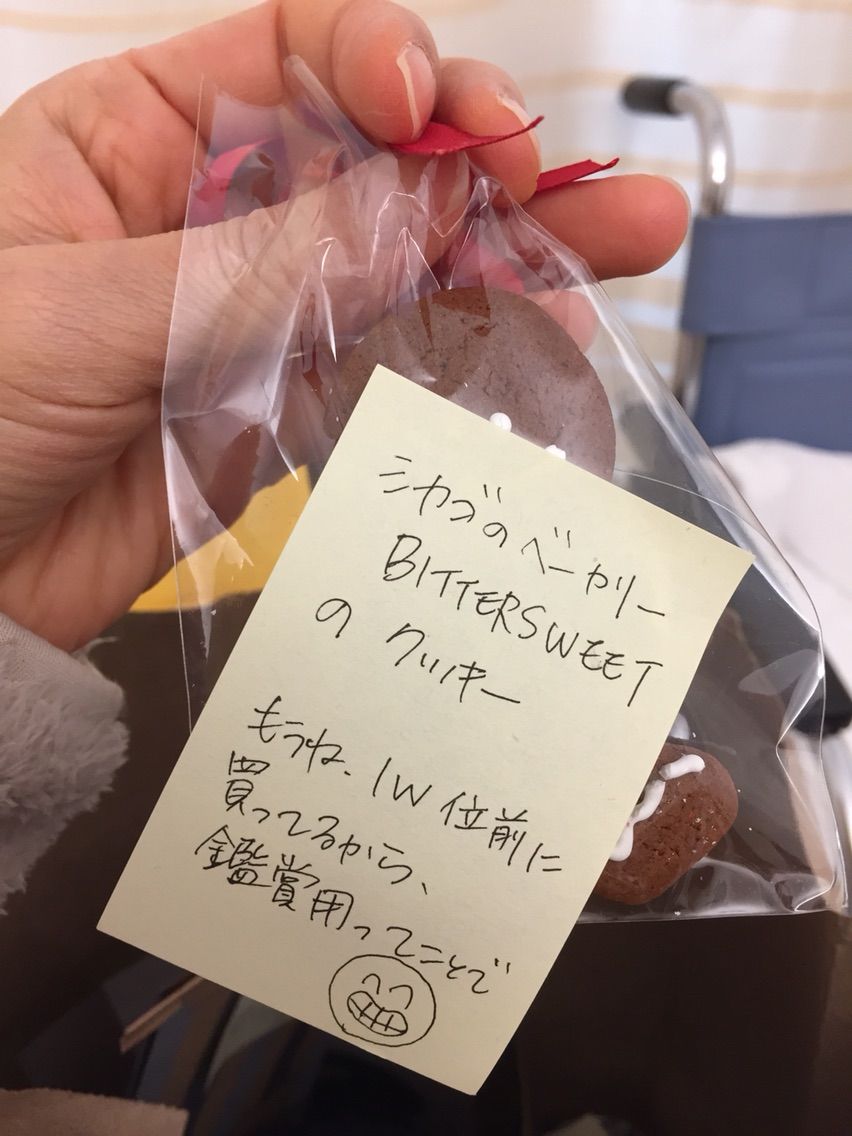 シカゴのベーカリー
BITTERSWEET
の クッキー
もうね、1W 位前に
買ってるから、
鑑賞用ってことで